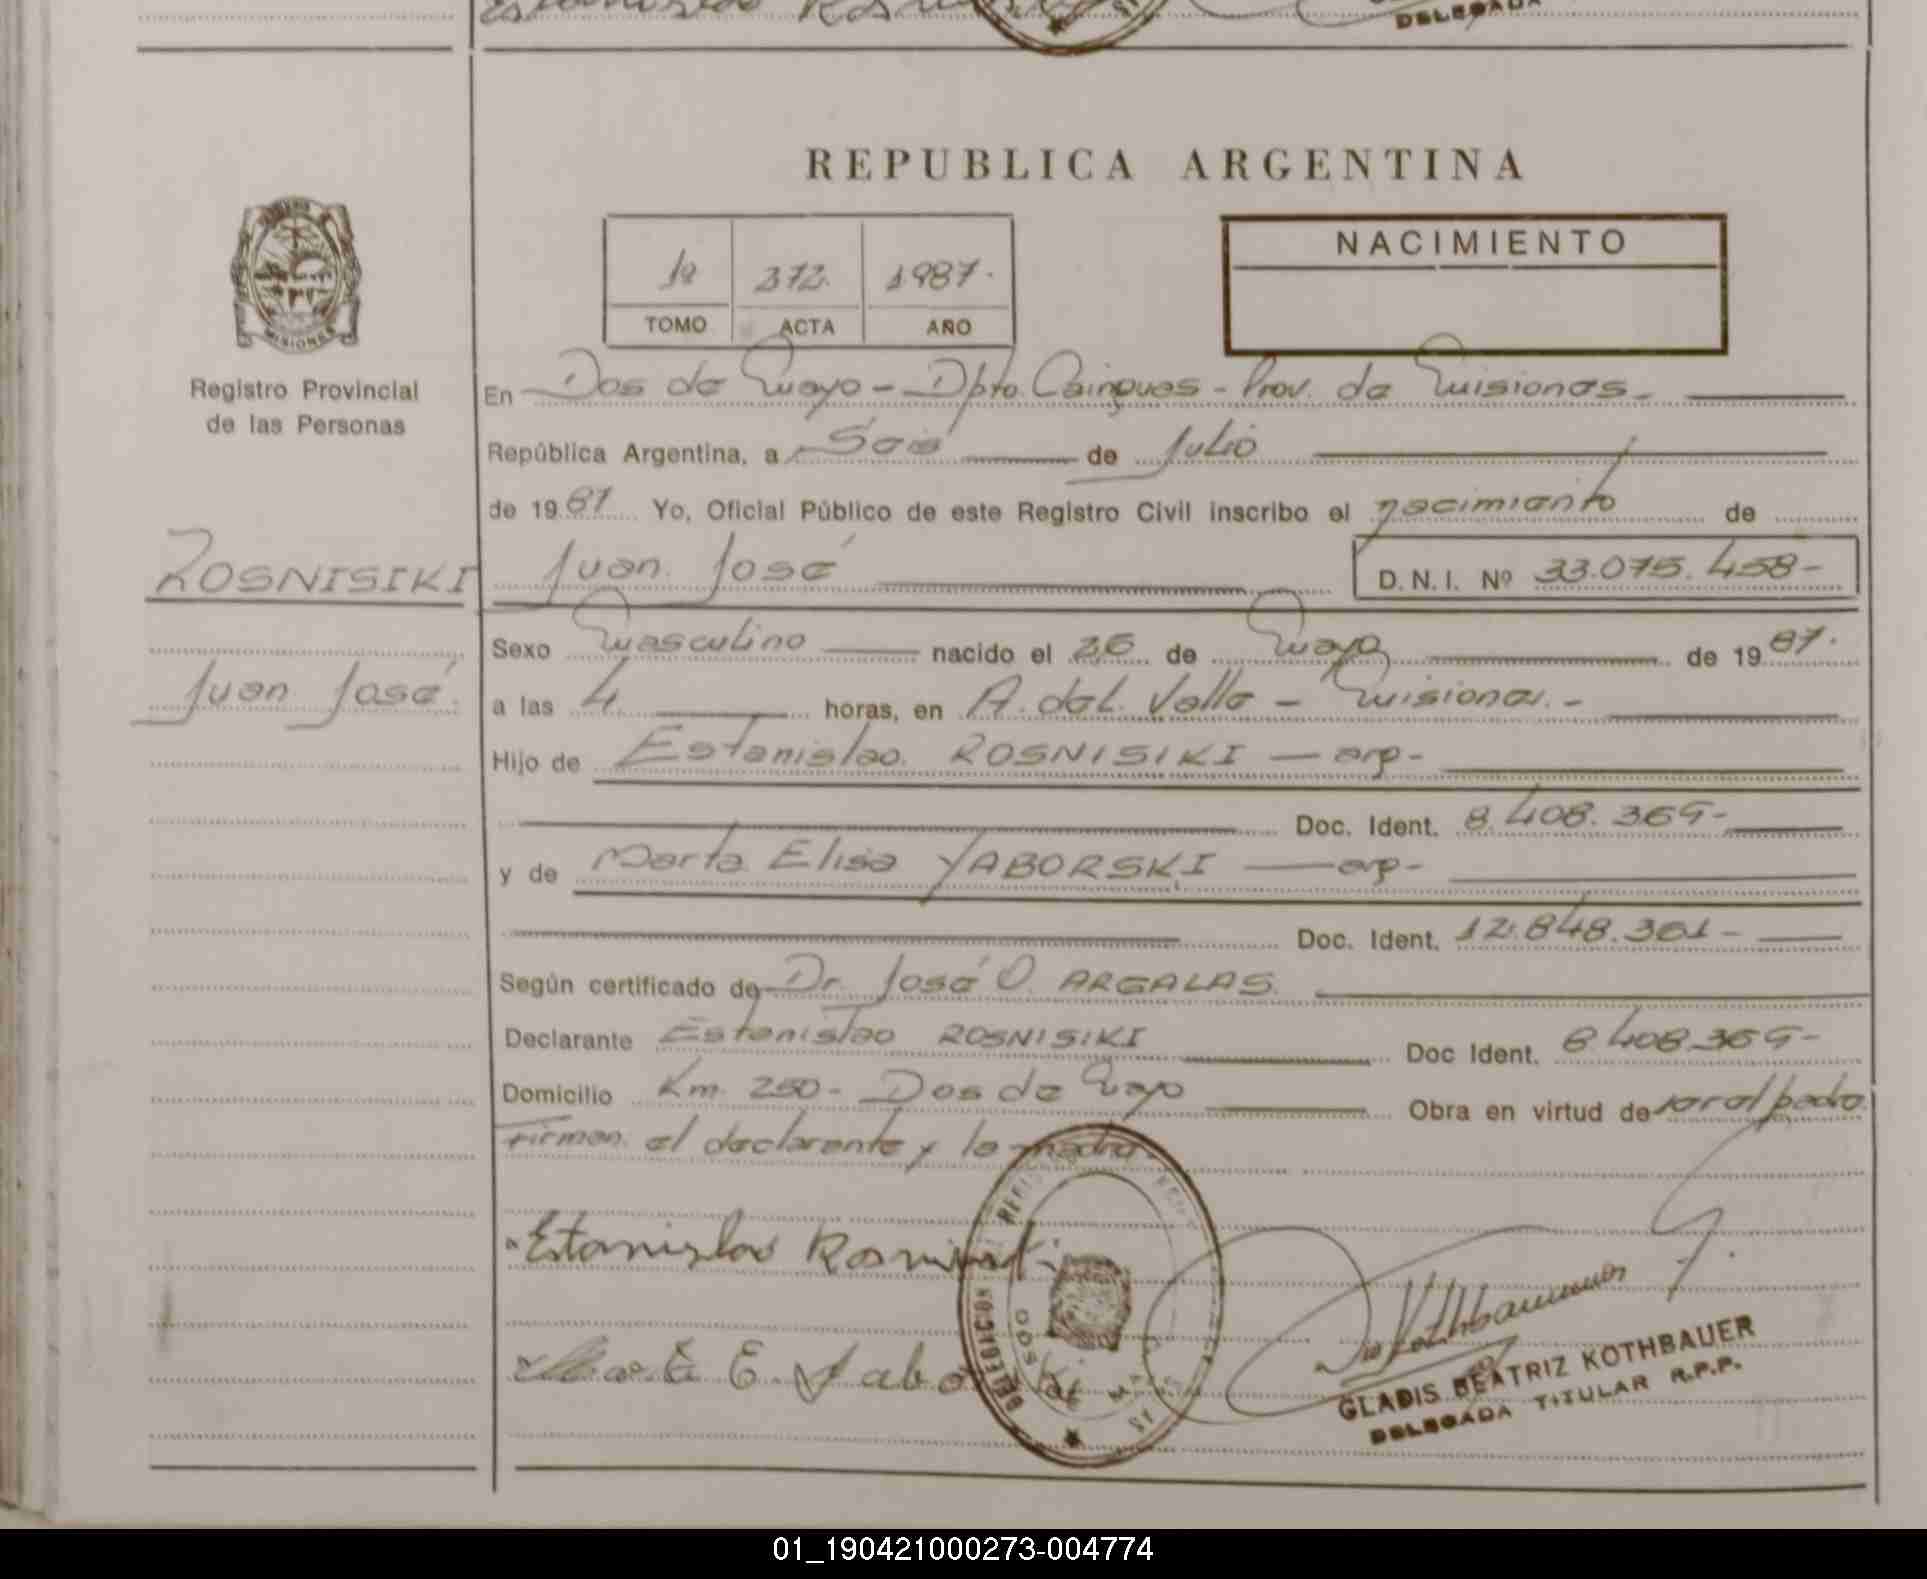 DELEGADA
REPUBLICA ARGENTINA
NACIMIENTO
1º 372. 1987.
TOMO ACTA AÑO
MISIONES
Registro Provincial
de las Personas
En Dos de Mayo - Dpto. Cainguas - Prov. de Misiones.
República Argentina, a Seis de Julio
de 1987 Yo, Oficial Público de este Registro Civil inscribo el nacimiento de
ROSNISIKI
Juan José D.N.I. Nº 33.075.458-
Sexo Masculino nacido el 26 de Mayo de 1987.
Juan José
a las 4 horas, en A. del Valle - Misiones.-
Hijo de Estanislao ROSNISIKI — arg-
Doc. Ident. 8.408.369-
y de Marta Elisa YABORSKI — arg-
Doc. Ident. 12.848.361-
Según certificado de Dr. José O. ARGALAS.
Declarante Estanislao ROSNISIKI Doc Ident. 8.408.369-
Domicilio Km. 250- Dos de Mayo Obra en virtud de ser el padre.
Firman el declarante y la madre.
Estanislao
E. Yaborski
DELEGACION
Kothbauer
GLADIS BEATRIZ KOTHBAUER
DELEGADA TITULAR R.P.P.
01_190421000273-004774